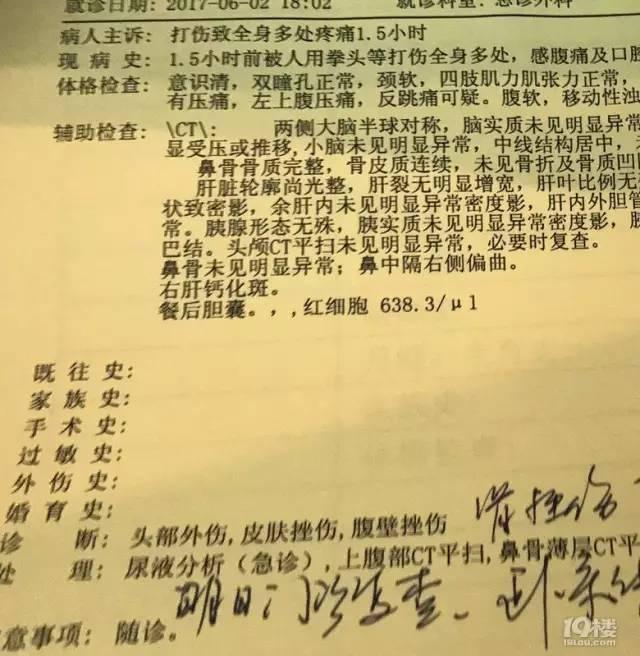 就诊日期: 2017-06-02 18:02 就诊科室: 急诊外科
病人主诉: 打伤致全身多处疼痛1.5小时
现 病 史: 1.5小时前被人用拳头等打伤全身多处，感腹痛及口腔
体格检查: 意识清，双瞳孔正常，颈软，四肢肌力肌张力正常，
有压痛，左上腹压痛，反跳痛可疑。腹软，移动性浊
辅助检查: \CT\: 两侧大脑半球对称，脑实质未见明显异常
显受压或推移，小脑未见明显异常，中线结构居中，
鼻骨骨质完整，骨皮质连续，未见骨折及骨质凹
肝脏轮廓尚光整，肝裂无明显增宽，肝叶比例无
状致密影，余肝内未见明显异常密度影，肝内外胆管
常。胰腺形态无殊，胰实质未见明显异常密度影，
巴结。头颅CT平扫未见明显异常，必要时复查。
鼻骨未见明显异常；鼻中隔右侧偏曲。
右肝钙化斑。
餐后胆囊。,,红细胞 638.3/μl
既 往 史:
家 族 史:
手 术 史:
过 敏 史:
外 伤 史:
婚 育 史:
诊 断: 头部外伤,皮肤挫伤,腹壁挫伤 肾挫伤
处 理: 尿液分析（急诊）,上腹部CT平扫,鼻骨薄层CT平
明日门诊复查
注意事项: 随诊。
19楼
19lou.com